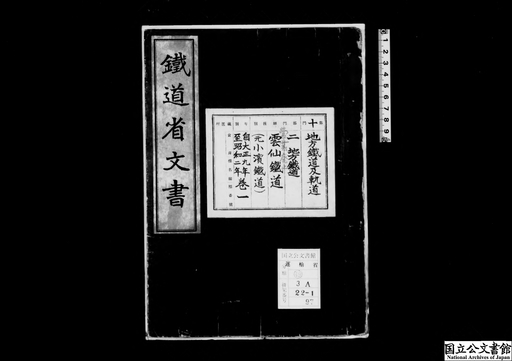 鐵道省文書
十 地方鐵道及軌道
二 地方鐵道
雲仙鐵道
（元小濱鐵道）
自大正九年
至昭和二年
巻一
国立公文書館
運輸省
3A
22-1
国立公文書館
National Archives of Japan